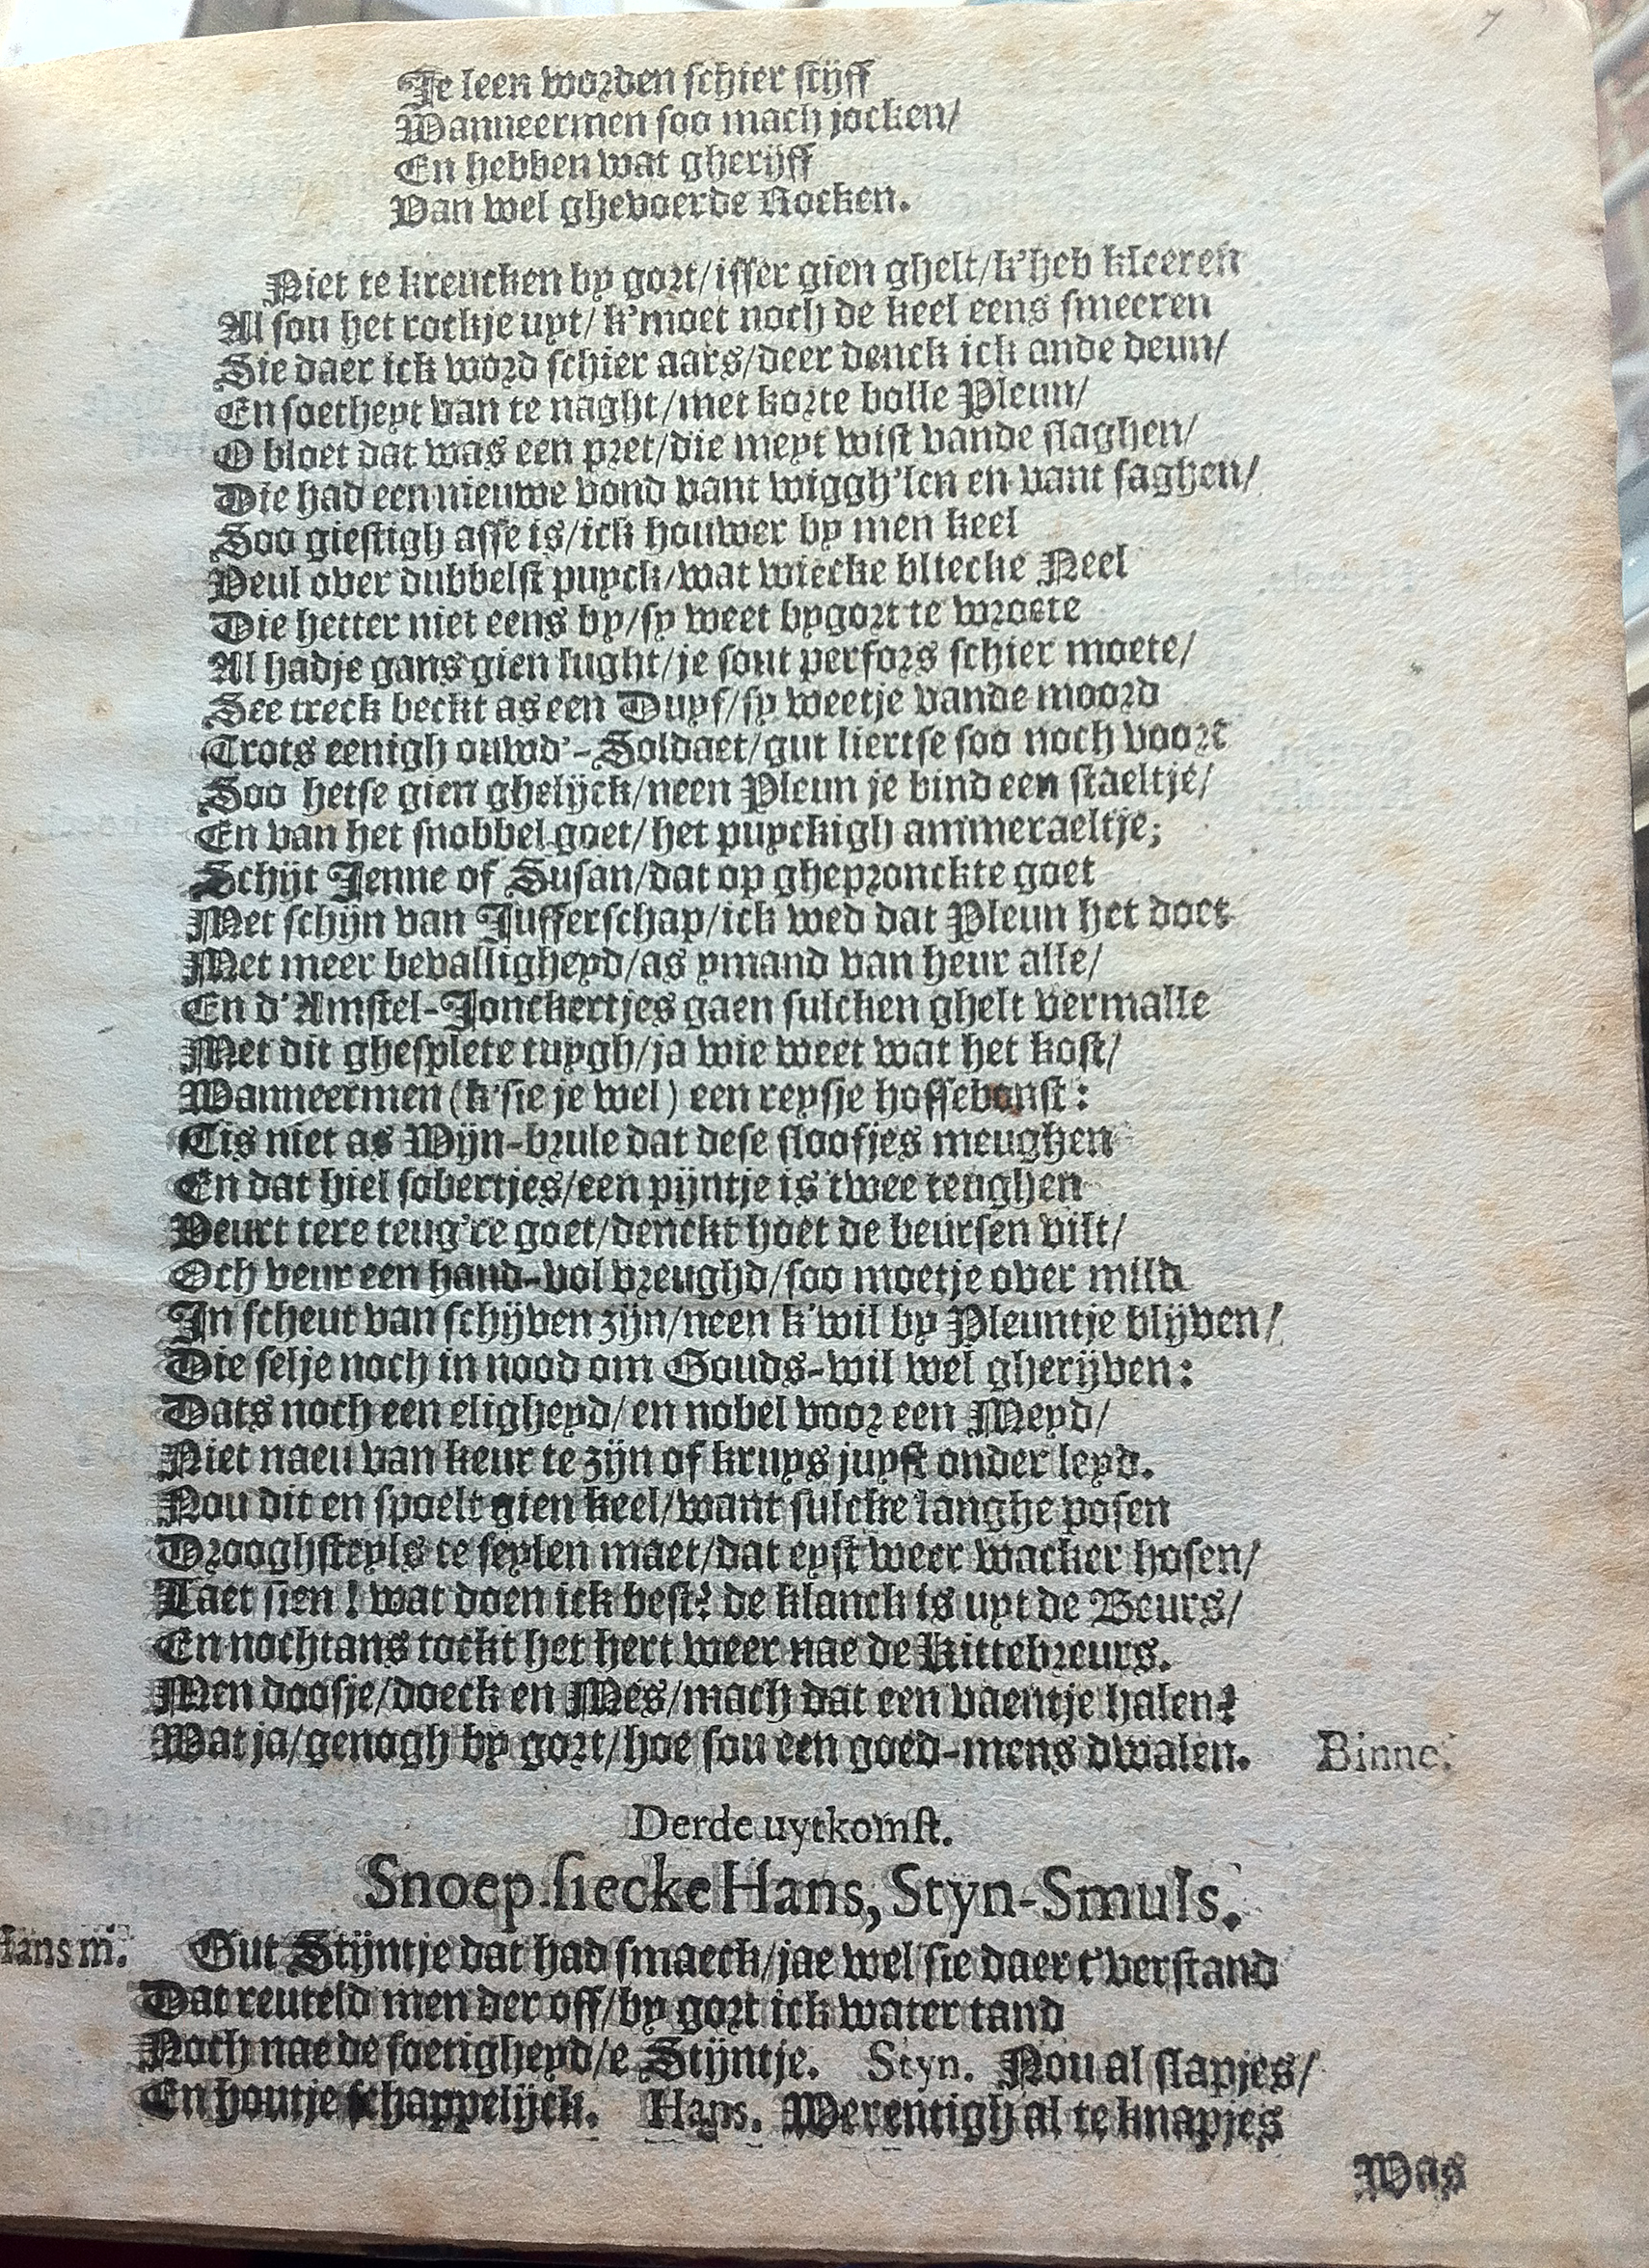 7
Je leen worden schier stijff
Wanneermen soo mach jocken/
En hebben wat gherijff
Van wel ghevoerde Rocken.
Niet te kreucken by gort/isser gien ghelt/k'heb kleeren
Al sou het rockje uyt/k'moet noch de keel eens smeeren
Sie daer ick word schier aars/deer denck ick ande deun/
En soetheyt van te naght/met korte bolle Pleun/
O bloet dat was een pret/die meyt wist vande slaghen/
Die had een nieuwe vond vant wiggh'len en vant saghen/
Soo giestigh asse is/ick houwer by men keel
Veul over dubbelst puyck/wat wiecke bliecke Neel
Die hetter niet eens by/sy weet bygort te wroete
Al hadje gans gien lught/je sout perfors schier moete/
See treck beckt as een Duyf/sy weetje vande moord
Trots eenigh ouwd'-Soldaet/gut liertse soo noch voort
Soo hetse gien ghelijck/neen Pleun je bind een staeltje/
En van het snobbel goet/het puyckigh ammeraeltje;
Schijt Jenne of Susan/dat op ghepronckte goet
Met schijn van Jufferschap/ick wed dat Pleun het doet
Met meer bevalligheyd/as ymand van heur alle/
En d'Amstel-Jonckertjes gaen sulcken ghelt vermalle
Met dit ghesplete tuygh/ja wie weet wat het kost/
Wanneermen (k'sie je wel) een reysje hossebonst:
Tis niet as Wijn-brule dat dese sloofjes meughen
En dat hiel sobertjes/een pijntje is twee teughen
Veurt tere teug're goet/denckt hoet de beursen vilt/
Och veur een hand-vol vreughd/soo moetje over mild
In scheut van schijven zijn/neen k'wil by Pleuntje blijven/
Die selje noch in nood om Gouds-wil wel gherijven:
Dats noch een eligheyd/en nobel voor een Meyd/
Niet naeu van keur te zijn of kruys juyst onder leyd.
Nou dit en spoelt gien keel/want sulcke langhe posen
Drooghsteyls te seylen maet/dat eyst weer wacker hosen/
Laet sien! wat doen ick best? de klanck is uyt de Beurs/
En nochtans tockt het hert weer nae de Kittebreurs.
Men doosje/doeck en Mes/mach dat een vaentje halen?
Wat ja/genogh by gort/hoe sou een goed-mens dwalen. Binne.
Derde uytkomst.
Snoep siecke Hans, Styn-Smuls.
Hans m. Gut Stijntje dat had smaeck/jae wel sie daer t'verstand
Dat reuteld men der off/by gort ick water tand
Noch nae de soetigheyd/e Stijntje. Styn. Nou al slapjes/
En houtje schappelijck. Hans. Werentigh al te knapjes
Was